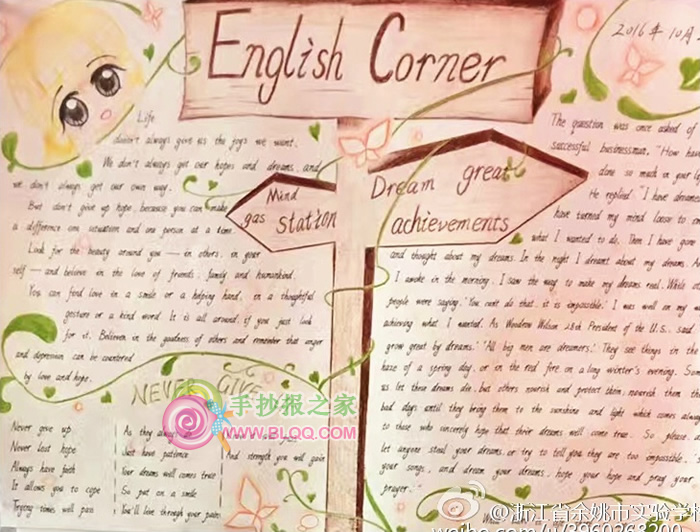 English Corner
2016年10月
Life
doesn't always give us the joys we want.
We don't always get our hopes and dreams, and
we don't always get our own way.
But don't give up hope, because you can make
a difference one situation and one person at a time.
Look for the beauty around you — in others, in your
self — and believe in the love of friends, family and humankind.
You can find love in a smile or a helping hand, in a thoughtful
gesture or a kind word. It is all around, if you just look
for it. Believe in the goodness of others and remember that anger
and depression can be countered
by love and hope.
Mind
gas station
Dream great
achievements
The question was once asked of
successful businessman, "How have
done so much in your
He replied. "I have dreamed
have turned my mind loose to
what I wanted to do. Then I have gone
and thought about my dreams. In the night I dreamt about my dreams. A
I awoke in the morning, I saw the way to make my dreams real. While
people were saying, 'You can't do that, it is impossible.' I was well on my
achieving what I wanted. As Woodrow Wilson 28th President of the U.S., said
grow great by dreams.' 'All big men are dreamers.' They see things in the
haze of a spring day, or in the red fire on a long winter's evening. Some
us let these dreams die, but others nourish and protect them; nourish them
bad days until they bring them to the sunshine and light which comes always
to those who sincerely hope that their dreams will come true. So please,
let anyone steal your dreams, or try to tell you they are too impossible.
your songs, and dream your dreams, hope your hope and pray your
prayer.
NEVER GIVE
Never give up
Never lost hope
Always have faith
It allows you to cope
Trying times will pass
As they always
Just have patience
Your dreams will comes true
So put on a smile
You'll live through your pain
And strength you will gain
手抄报之家
WWW.BLQQ.COM
@浙江省余姚市实验学
weibo.com/u/3960263200